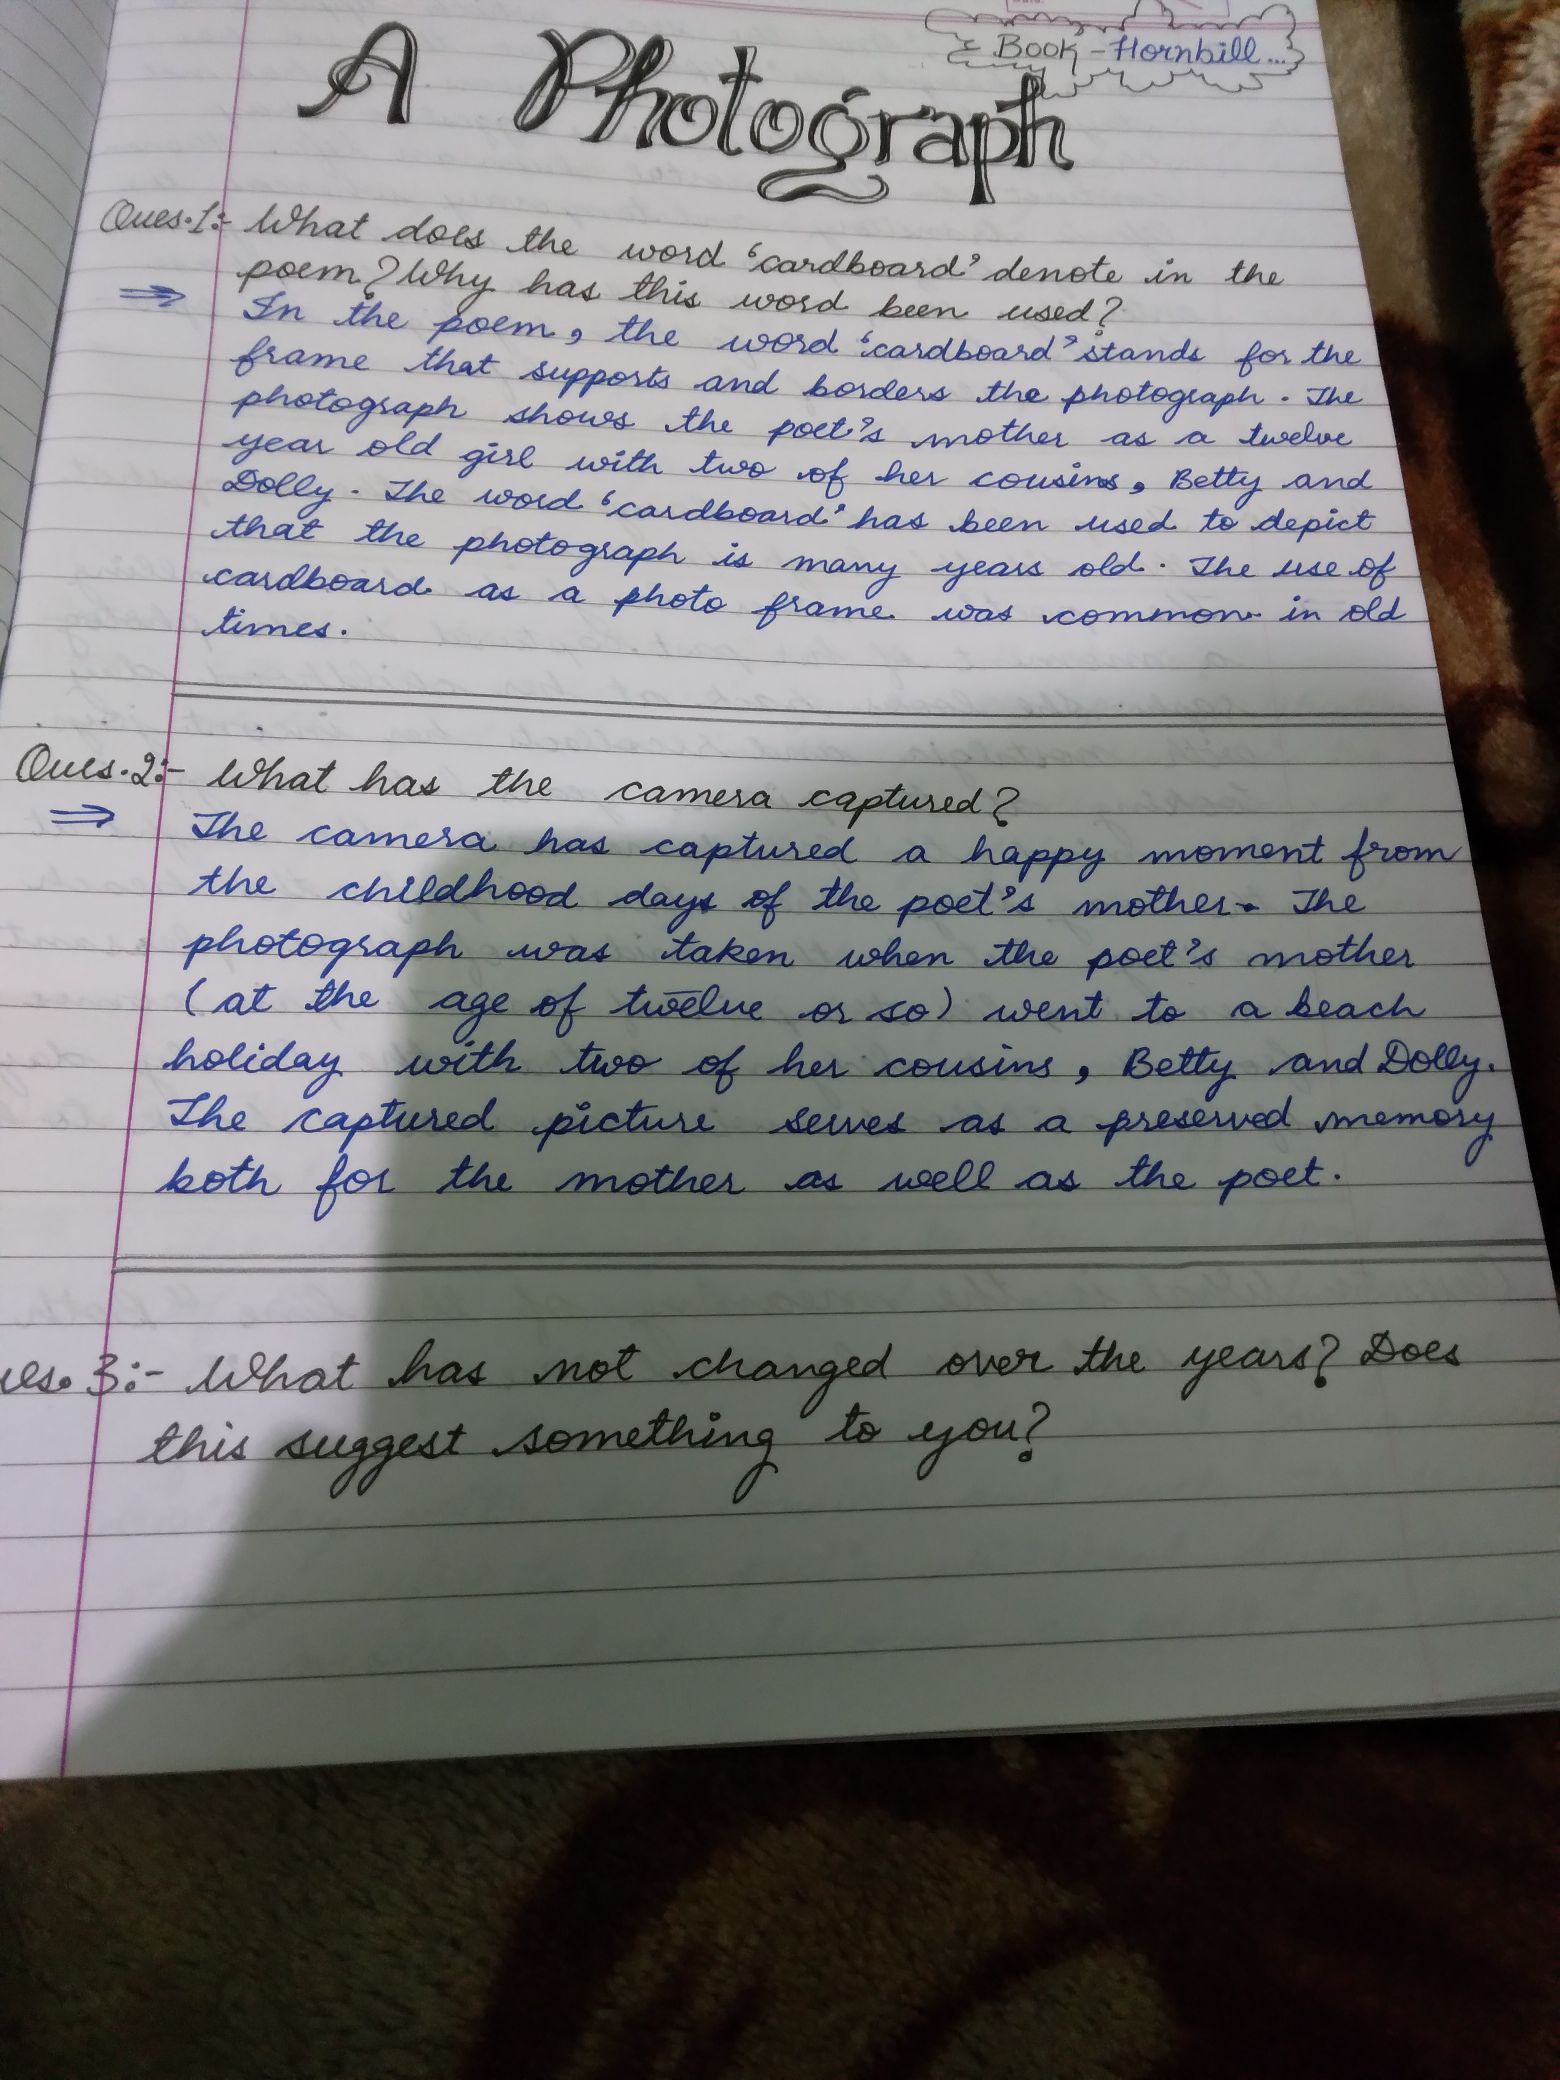 Book - Hornbill...
A Photograph
Ques.1:- What does the word 'cardboard' denote in the
poem? Why has this word been used?
⇒ In the poem, the word 'cardboard' stands for the
frame that supports and borders the photograph. The
photograph shows the poet's mother as a twelve
year old girl with two of her cousins, Betty and
Dolly. The word 'cardboard' has been used to depict
that the photograph is many years old. The use of
cardboard as a photo frame was common in old
times.
Ques.2:- What has the camera captured?
⇒ The camera has captured a happy moment from
the childhood days of the poet's mother. The
photograph was taken when the poet's mother
(at the age of twelve or so) went to a beach
holiday with two of her cousins, Betty and Dolly.
The captured picture serves as a preserved memory
both for the mother as well as the poet.
ues.3:- What has not changed over the years? Does
this suggest something to you?